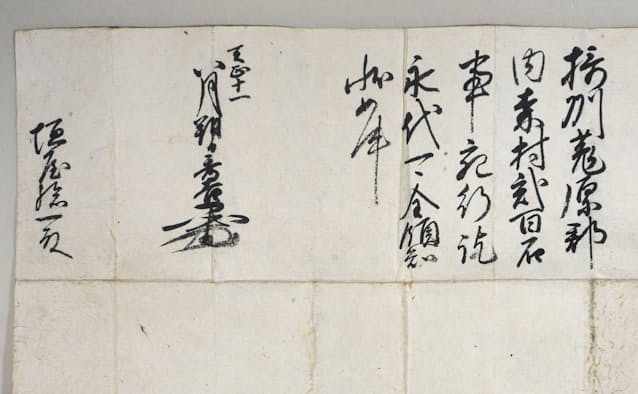 摂州菟原郡
内森村弐百石
事宛行訖
永代可全領知
状如件
天正十一
八月朔日秀吉
垣屋